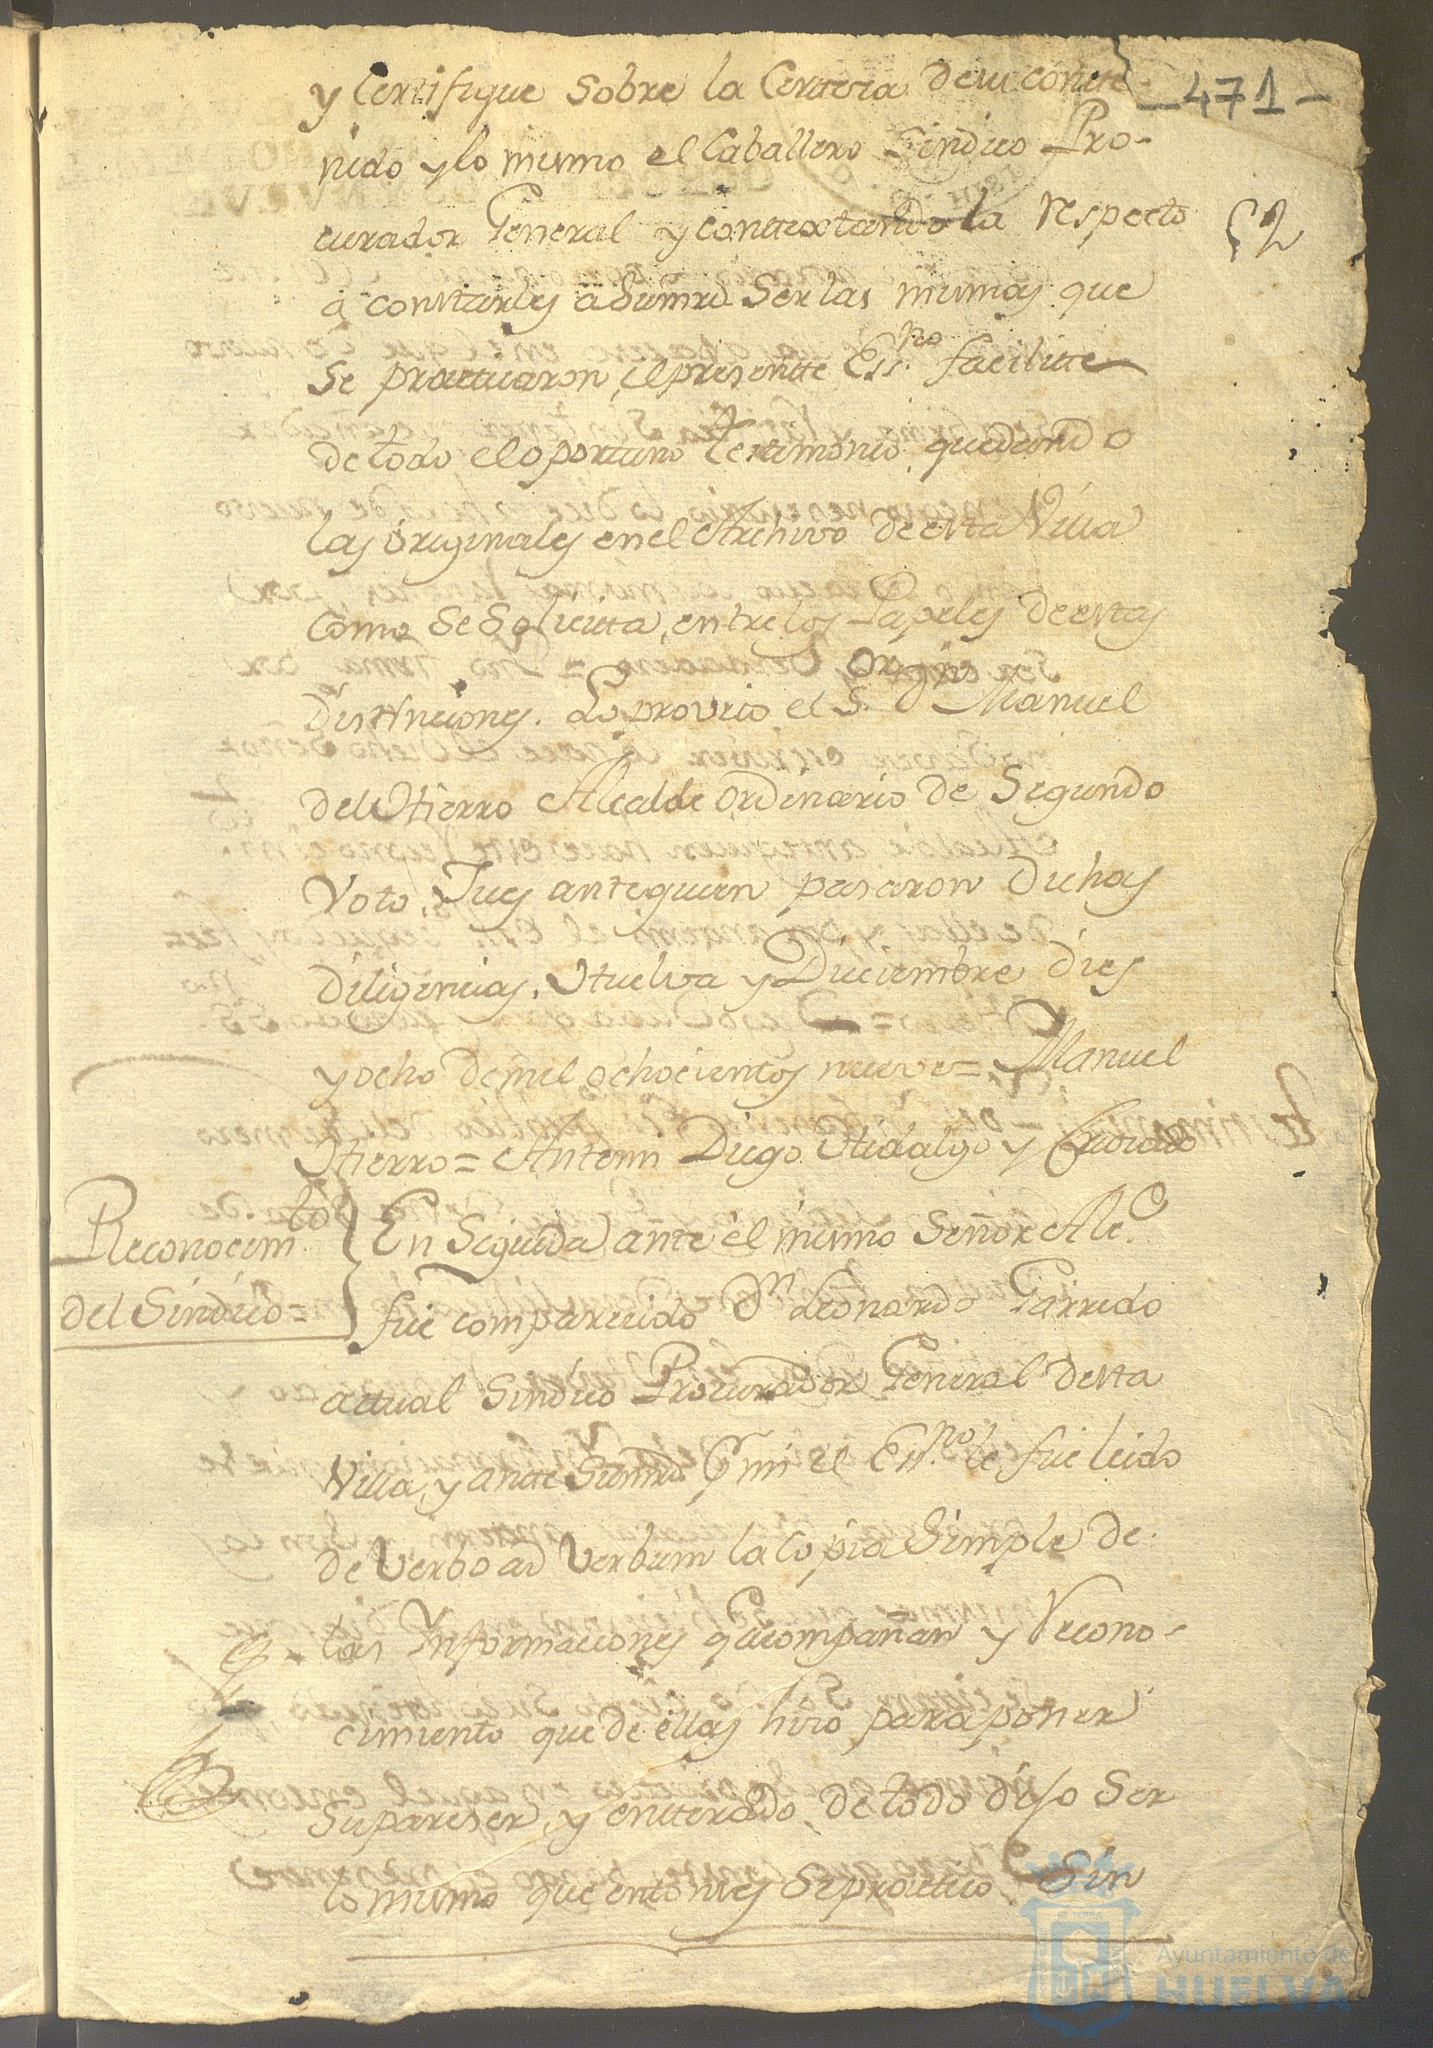 y Certifique sobre la Certeza de su conte
- 471 -
nido y lo mismo el Caballero Sindico Pro-
curador General y contextandola respecto
52
a constarles a su mrd ser las mismas que
se practicaron, el presente Ess.no facilite
de todo el oportuno testimonio quedando
las originales en el Archivo de esta Villa
como se solicita, entre los Papeles de estas
Distinciones. Lo proveio el S.r D.n Manuel
del Hierro Alcalde ordinario de Segundo
Voto, Jues ante quien pasaron dichas
diligencias. Huelva y Diciembre dies
y ocho de mil ochocientos nueve = Manuel
Hierro = Antemi Diego Hidalgo y
Reconocim.to
del Sindico =
En Seguida ante el mismo Señor Alc.e
fue comparecido D.n Leonardo Garrido
actual Sindico Procurador General desta
Villa, y ante su mrd Pr mi el Ess.no le fue leido
de Verbo ad Verbum la Copia Simple de
las Ynformaciones q.e acompañan y Recono-
cimiento que de ellas hiso para poner
su pareser, y enterado de todo dijo ser
lo mismo que entonses se practico, Sin
Ayuntamiento de
HUELVA